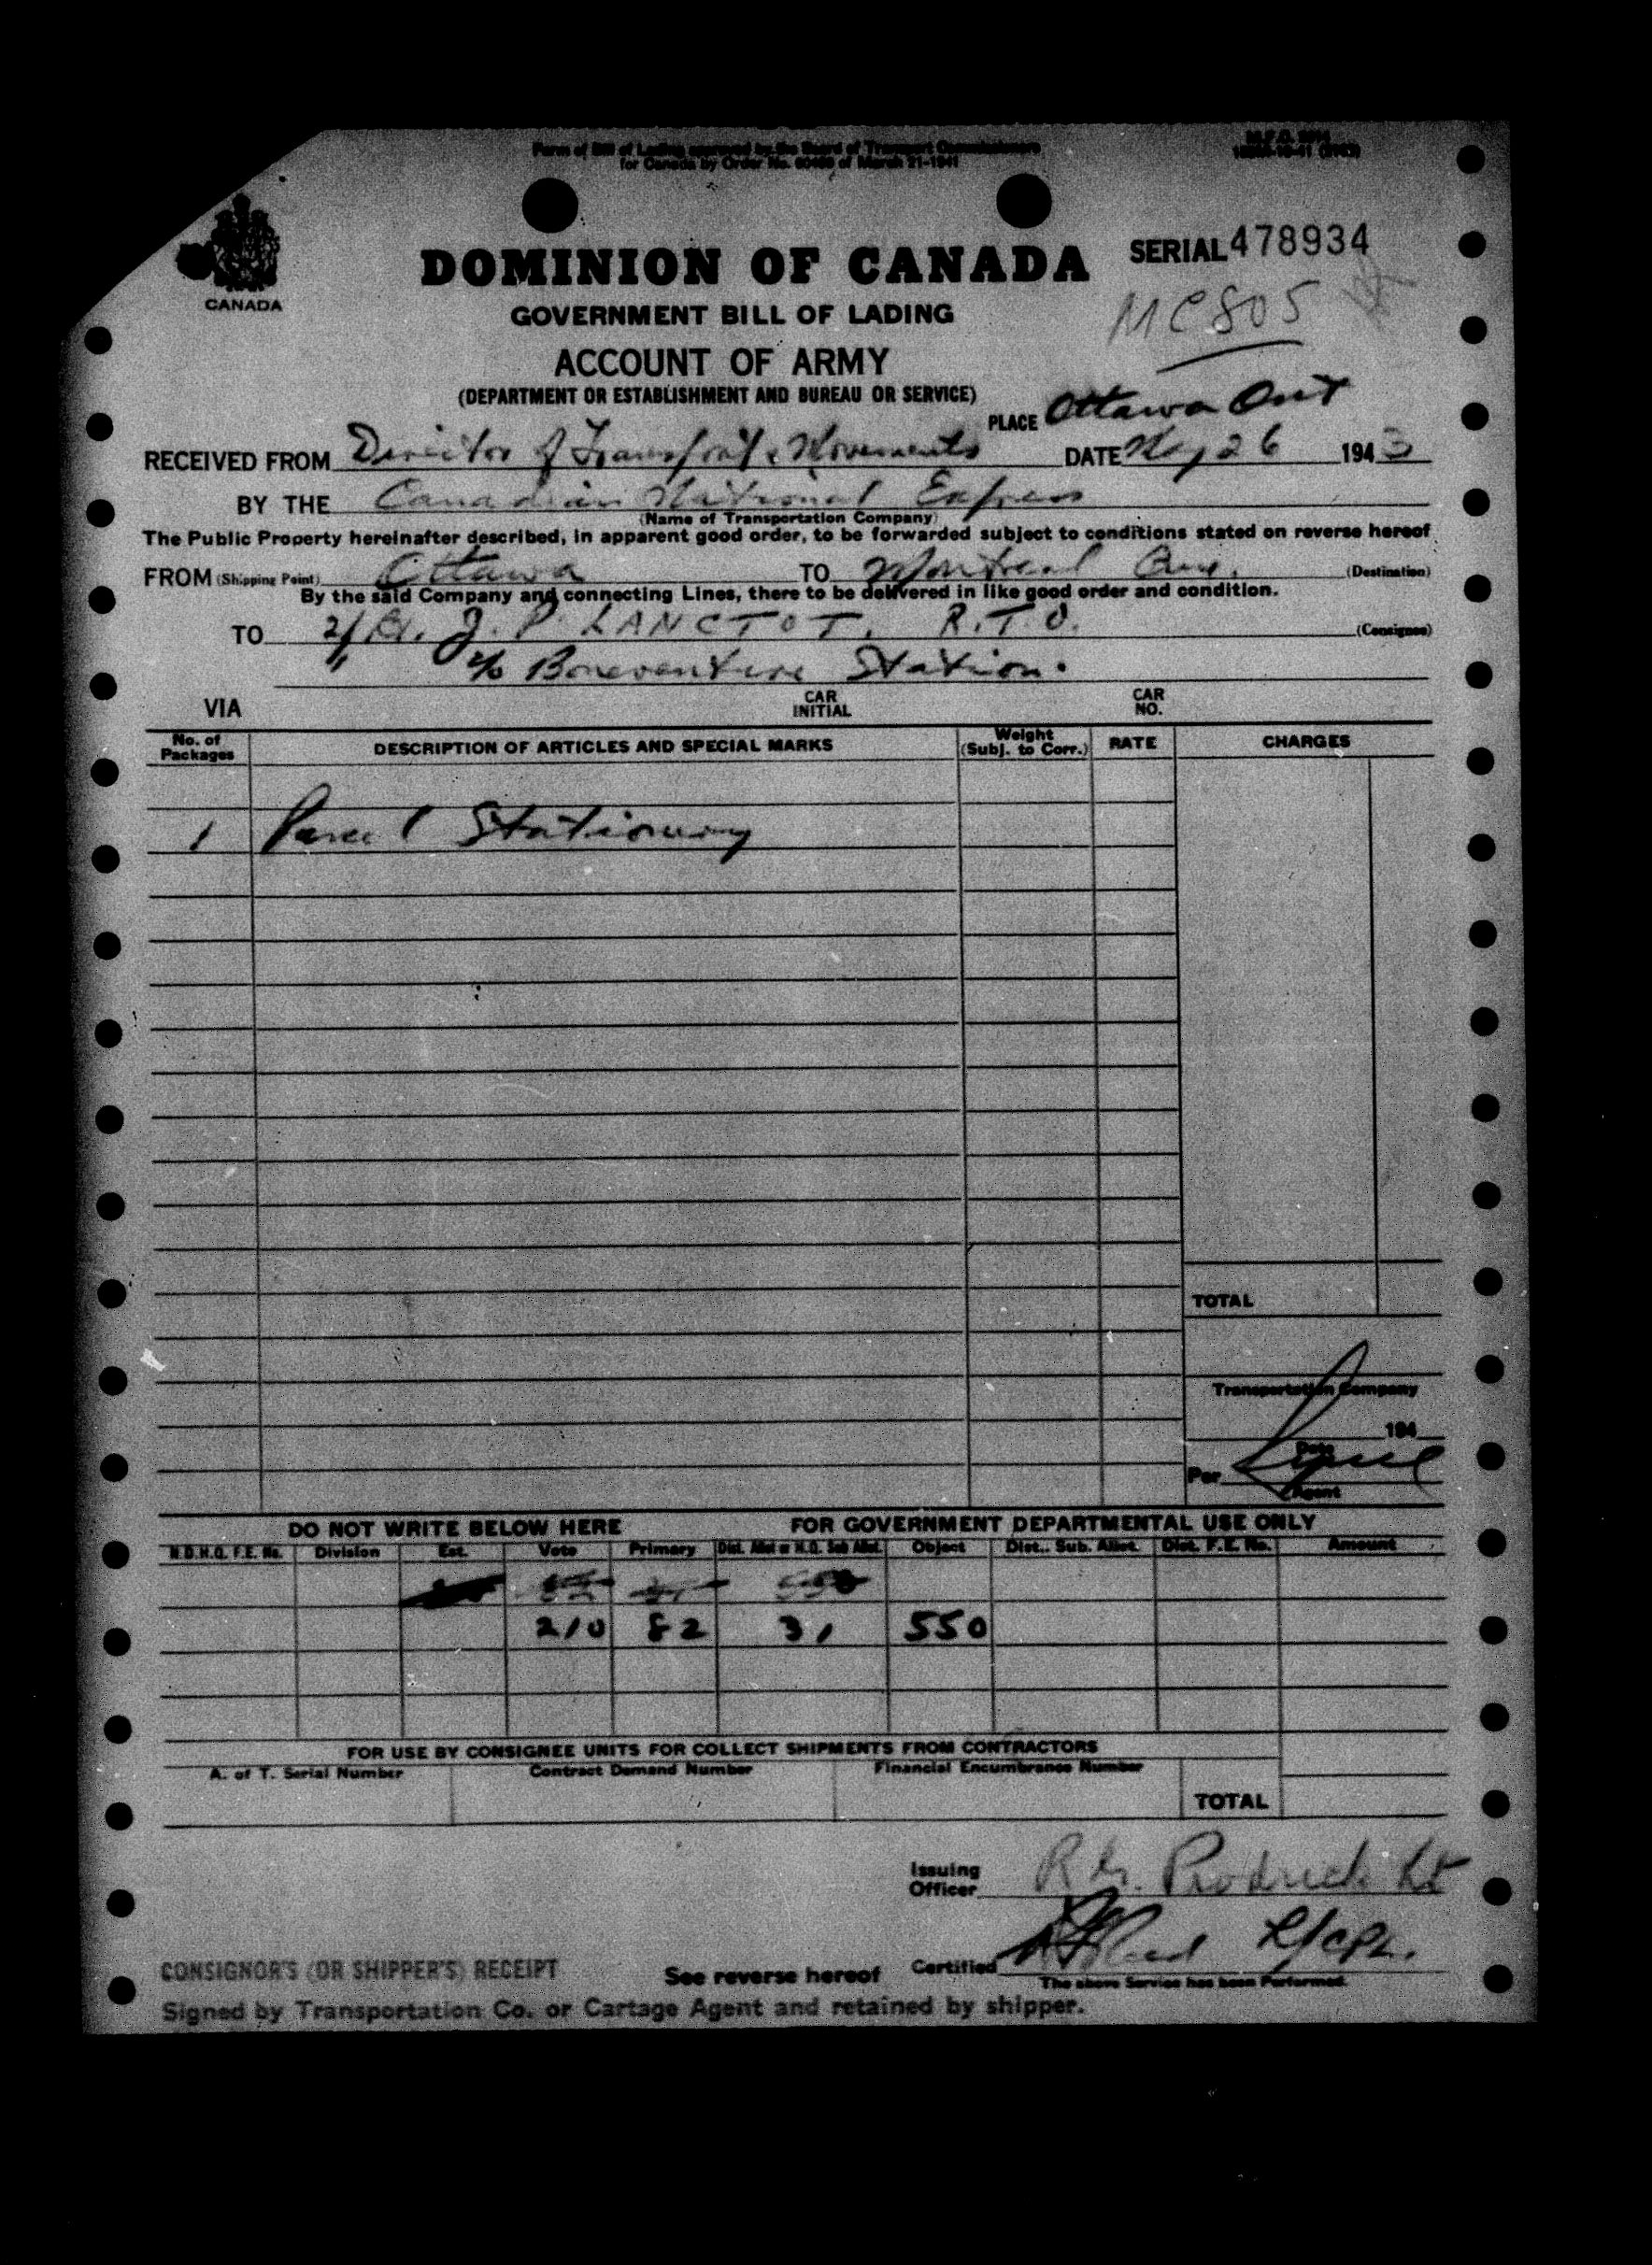 Form of Bill of Lading approved by the Board of Transport Commissioners
for Canada by Order No. 60469 of March 21-1941
CANADA
DOMINION OF CANADA
SERIAL 478934
GOVERNMENT BILL OF LADING
MC805
ACCOUNT OF ARMY
(DEPARTMENT OR ESTABLISHMENT AND BUREAU OR SERVICE)
PLACE Ottawa Ont
RECEIVED FROM Director of Transport & Movements DATE May 26 1943
BY THE Canadian National Express
(Name of Transportation Company)
The Public Property hereinafter described, in apparent good order, to be forwarded subject to conditions stated on reverse hereof
FROM (Shipping Point) Ottawa TO Montreal Que. (Destination)
By the said Company and connecting Lines, there to be delivered in like good order and condition.
TO J. P. LANCTOT, R.T.O. (Consignee)
c/o Boneventure Station.
VIA CAR INITIAL CAR NO.
No. of Packages DESCRIPTION OF ARTICLES AND SPECIAL MARKS Weight (Subj. to Corr.) RATE CHARGES
1 Parcel Stationery
TOTAL
Transportation Company
194
Date
Per
Agent
DO NOT WRITE BELOW HERE FOR GOVERNMENT DEPARTMENTAL USE ONLY
N.D.H.Q. F.E. No. Division Est. Vote Primary Dist. Allot or H.Q. Sub Allot. Object Dist. Sub. Allot. Dist. F.E. No. Amount
82 31 550
210 82 31 550
FOR USE BY CONSIGNEE UNITS FOR COLLECT SHIPMENTS FROM CONTRACTORS
A. of T. Serial Number Contract Demand Number Financial Encumbrance Number
TOTAL
Issuing Officer Lt
Certified L/CPL.
The above Service has been Performed.
CONSIGNOR'S (OR SHIPPER'S) RECEIPT See reverse hereof
Signed by Transportation Co. or Cartage Agent and retained by shipper.